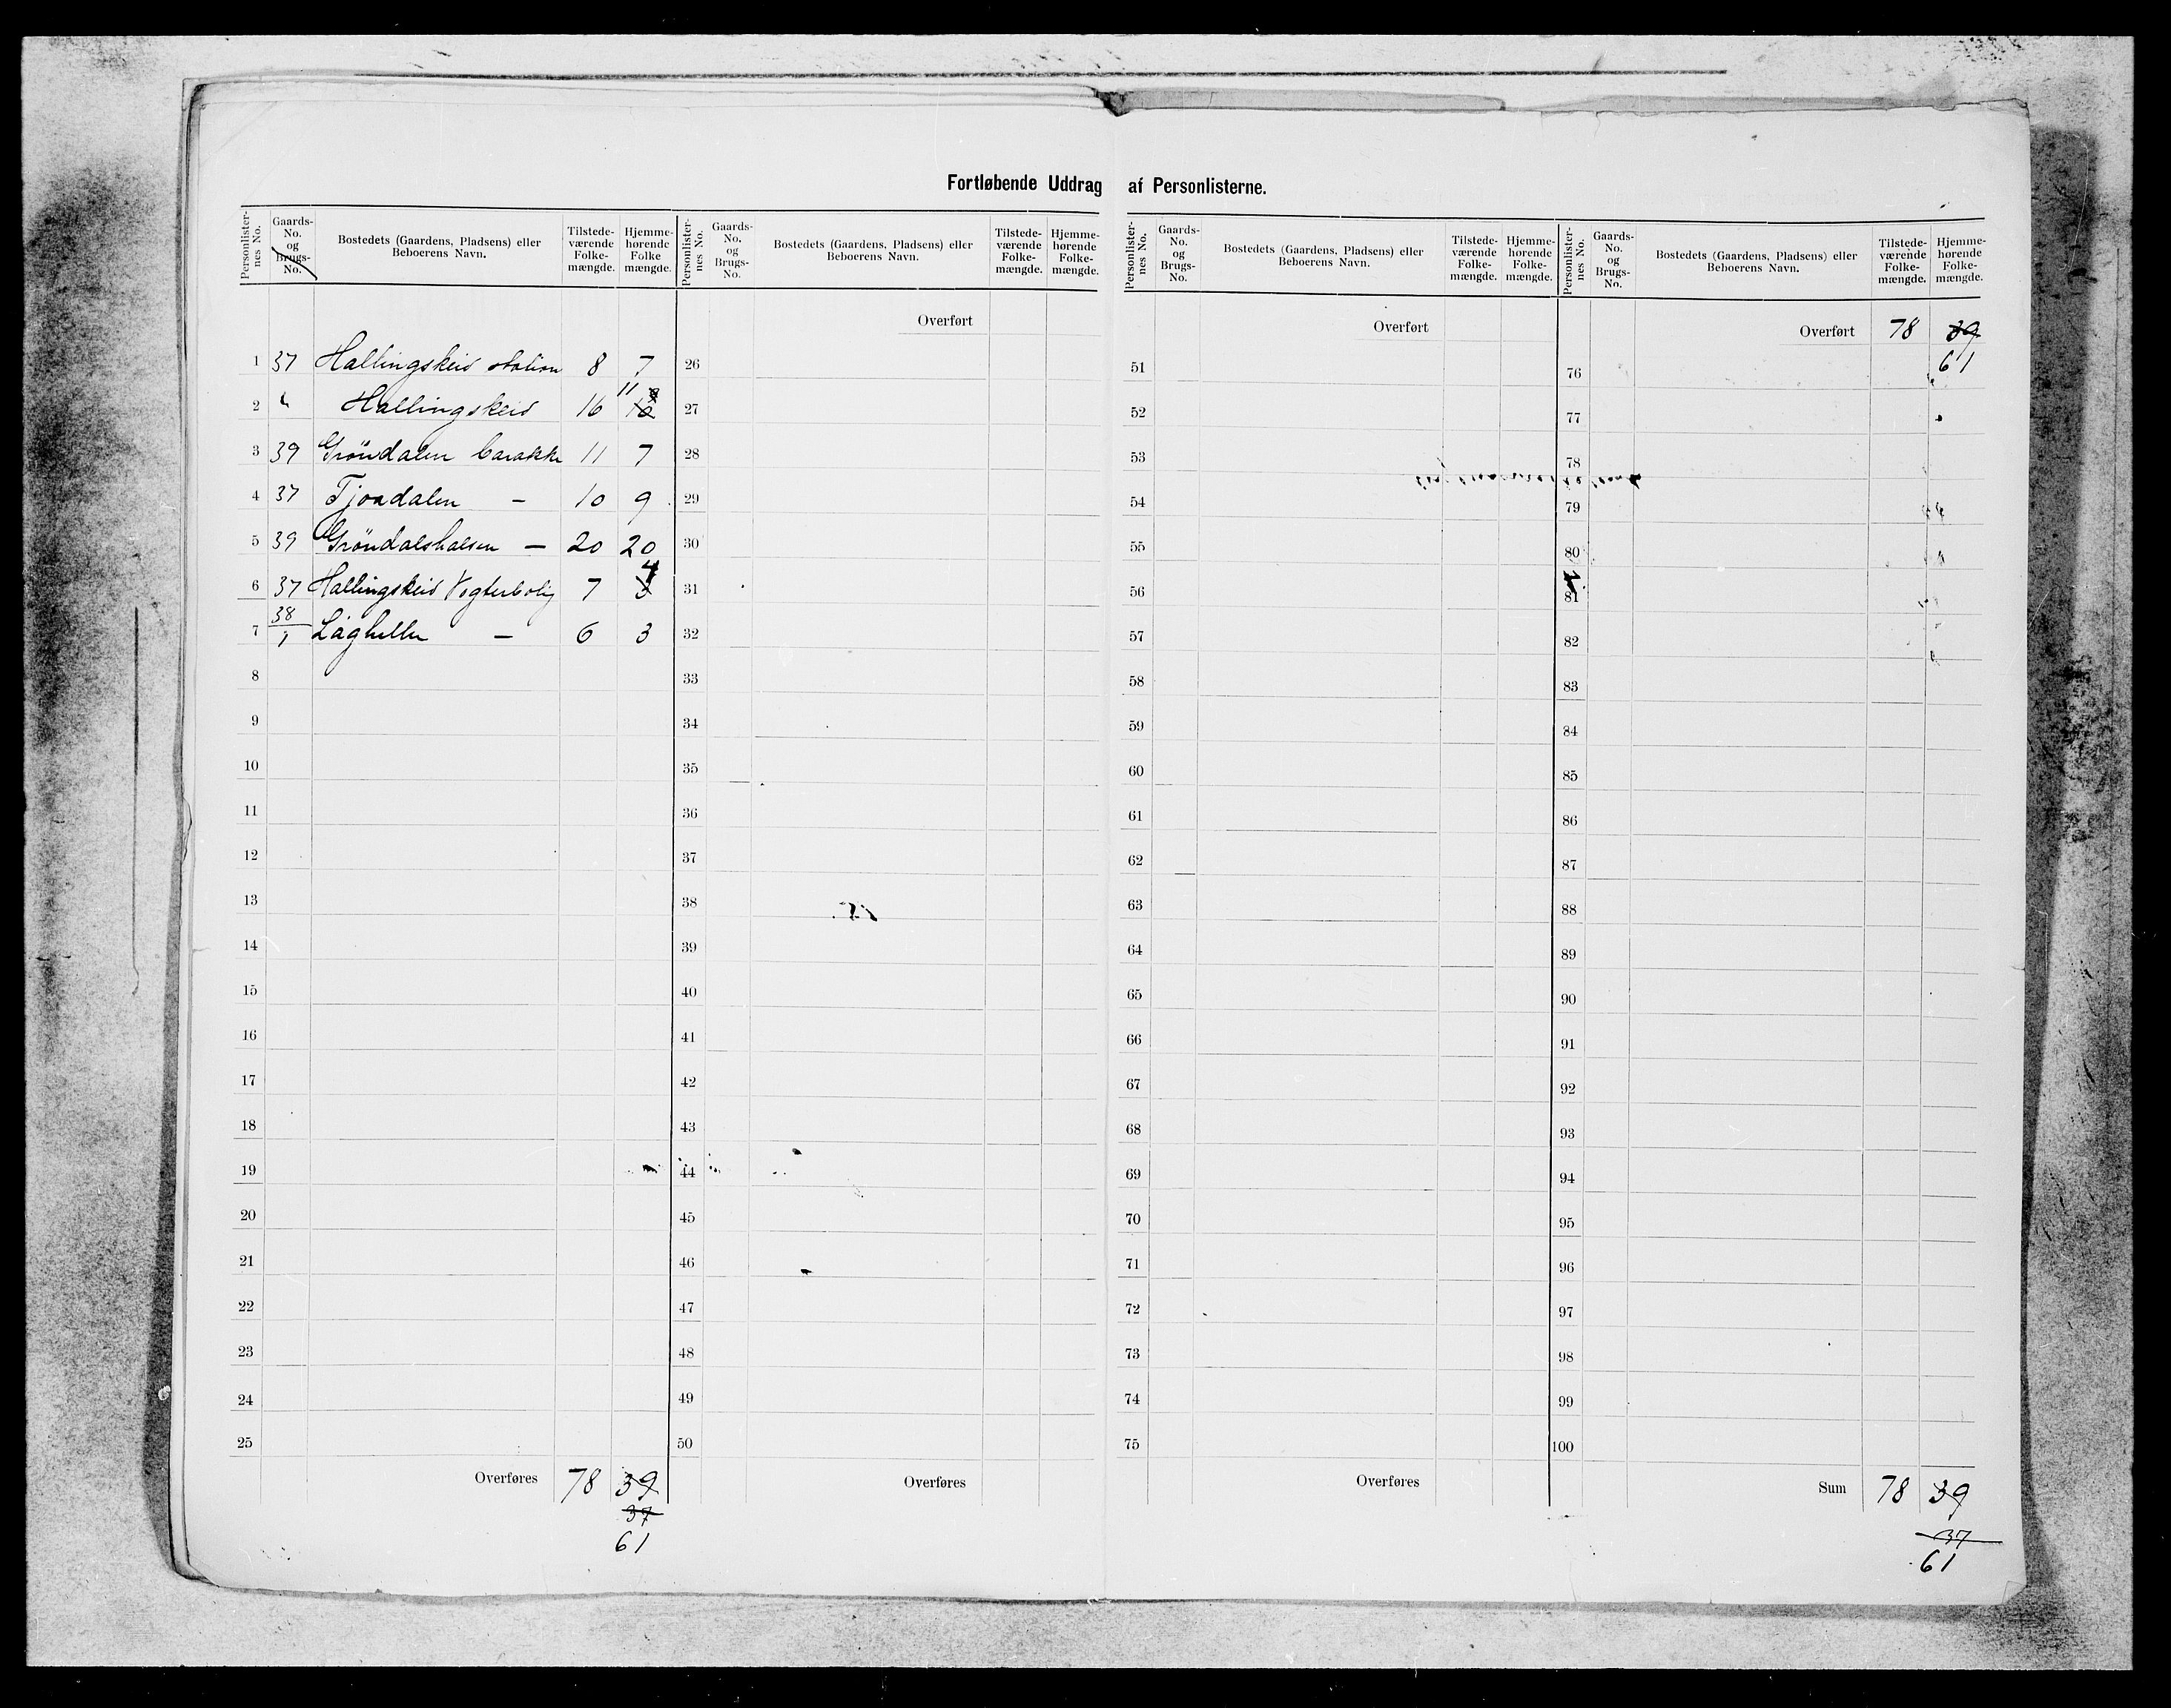 Fortløbende Uddrag af Personlisterne.
Personlister-nes No. | Gaards-No. og Brugs-No. | Bostedets (Gaardens, Pladsens) eller Beboerens Navn. | Tilstede-værende Folke-mængde. | Hjemme-hørende Folke mængde.
1 37 Hallingskeid station 8 7
2 " Hallingskeid 16 11
3 39 Gröndalen barakke 11 7
4 37 Tjoadalen — 10 9
5 39 Gröndalshalsen — 20 20
6 37 Hallingskeid Vogterbolig 7 4
7 38/1 Lågheller — 6 3
8
9
10
11
12
13
14
15
16
17
18
19
20
21
22
23
24
25
Overføres 78 39
37
61
Personlister-nes No. | Gaards-No. og Brugs-No. | Bostedets (Gaardens, Pladsens) eller Beboerens Navn. | Tilstede-værende Folke-mængde. | Hjemme-hørende Folke-mængde.
Overført
26
27
28
29
30
31
32
33
34
35
36
37
38
39
40
41
42
43
44
45
46
47
48
49
50
Overføres
Personlister-nes No. | Gaards-No. og Brugs-No. | Bostedets (Gaardens, Pladsens) eller Beboerens Navn. | Tilstede-værende Folke-mængde. | Hjemme-hørende Folke-mængde.
Overført
51
52
53
54
55
56
57
58
59
60
61
62
63
64
65
66
67
68
69
70
71
72
73
74
75
Overføres
Personlister-nes No. | Gaards-No. og Brugs-No. | Bostedets (Gaardens, Pladsens) eller Beboerens Navn. | Tilstede-værende Folke-mængde. | Hjemme-hørende Folke-mængde.
Overført 78 39
61
76
77
78
79
80
81
82
83
84
85
86
87
88
89
90
91
92
93
94
95
96
97
98
99
100
Sum 78 39
37
61